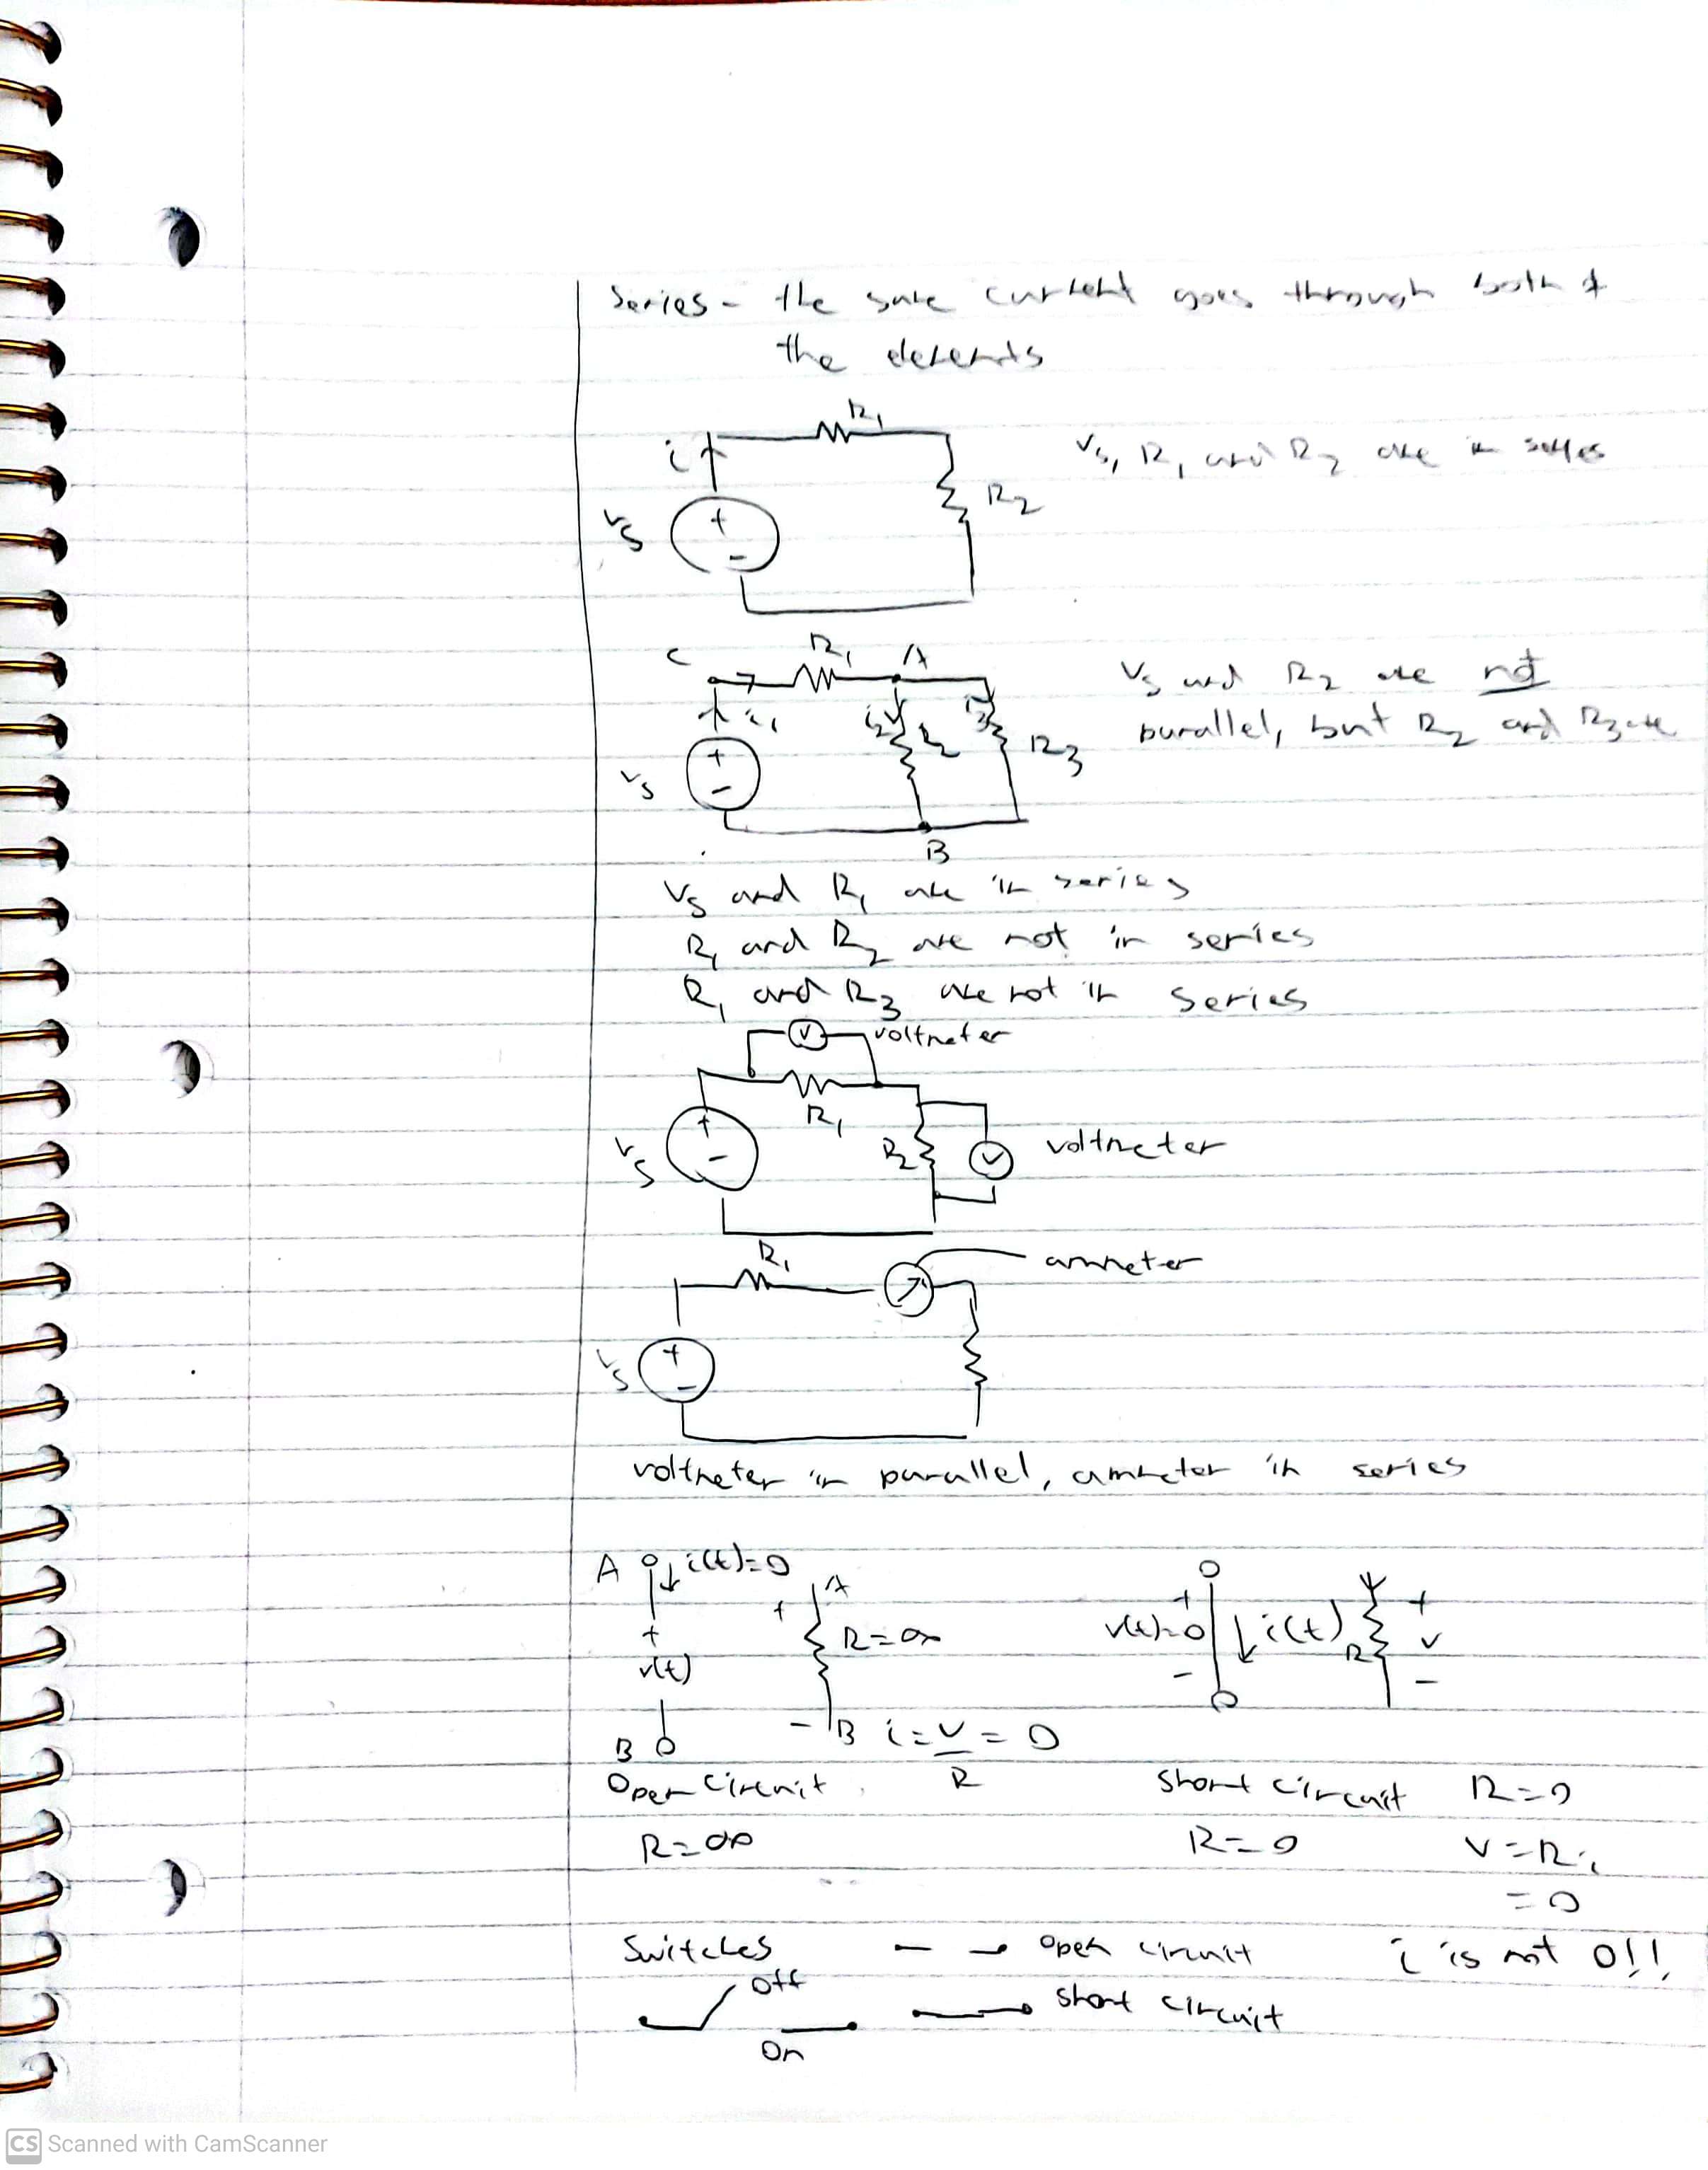 Series - the same current goes through both of
the elements
R1
i
Vs, R1 and R2 are in series
R2
Vs
+
-
C
R1
A
Vs and R2 are not
parallel, but R2 and R3 are
i1
i2
R2
i3
R3
Vs
+
-
B
Vs and R1 are in series
R1 and R2 are not in series
R1 and R3 are not in series
V
voltmeter
R1
Vs
+
-
R2
V
voltmeter
R1
ammeter
Vs
+
-
voltmeter in parallel, ammeter in series
A
i(t)=0
+
v(t)
B
A
+
R=∞
-
B
i=V/R=0
+
v(t)=0
-
i(t)
R
+
v
-
Open Circuit
Short Circuit
R=0
R=∞
R=0
V=Ri
=0
Switches
open circuit
i is not 0!!
Off
short circuit
On
CS Scanned with CamScanner